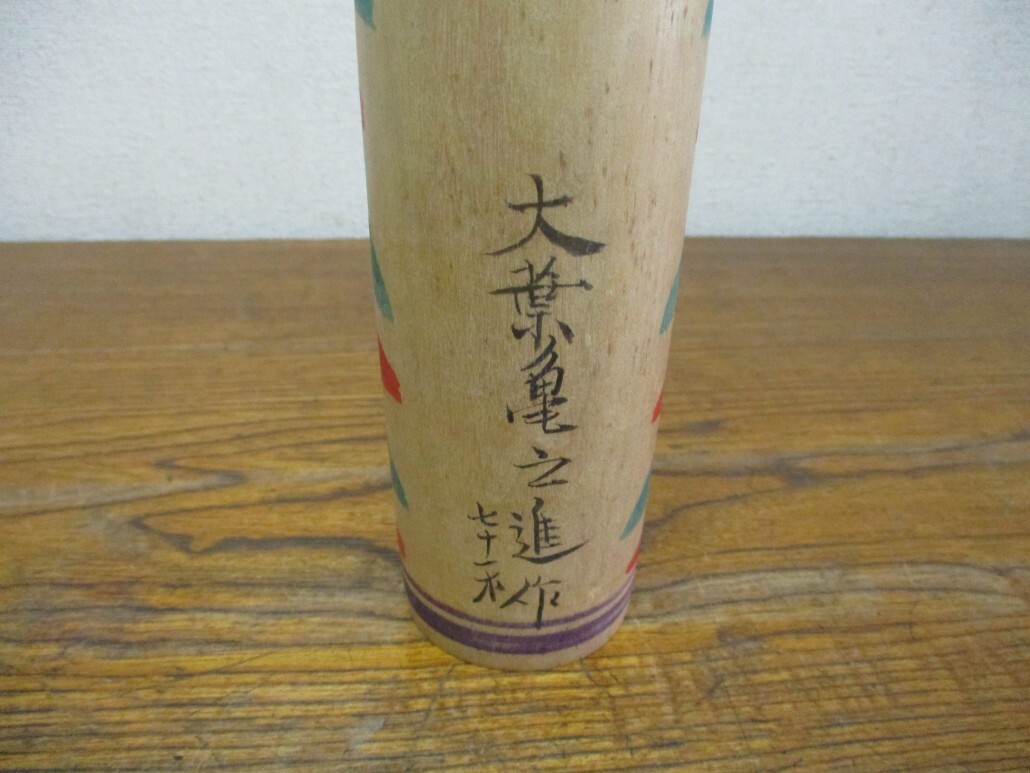 大葉亀之進作
七十一才